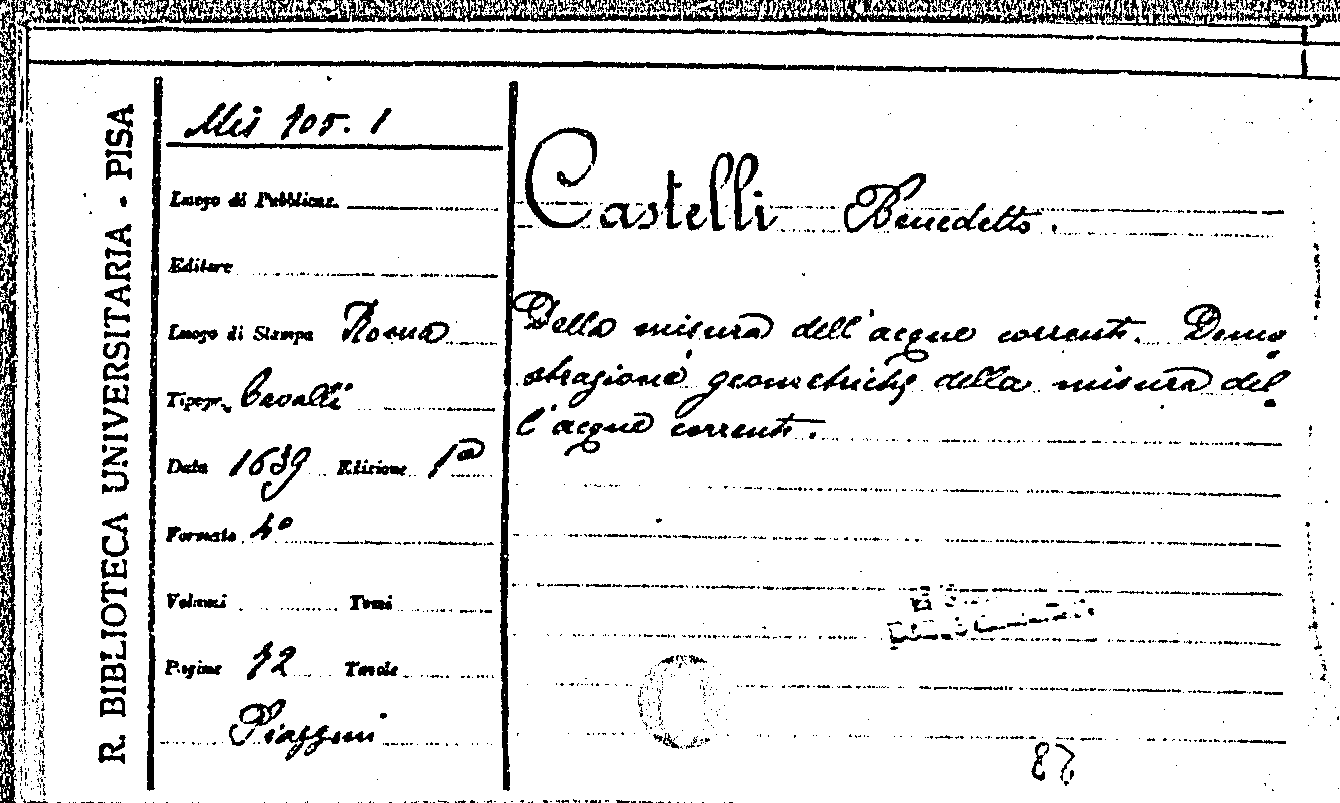 R. BIBLIOTECA UNIVERSITARIA - PISA
Mis 105. 1
Luogo di Pubblicaz.
Editore
Luogo di Stampa Roma
Tipogr. Cavalli
Data 1639 Edizione 1ª
Formato 4º
Volumi Tomi
Pagine 72 Tavole
Piazzini
Castelli Benedetto.
Della misura dell'acque correnti. Dimo
strazioni geometriche della misura del
l'acque correnti.
87